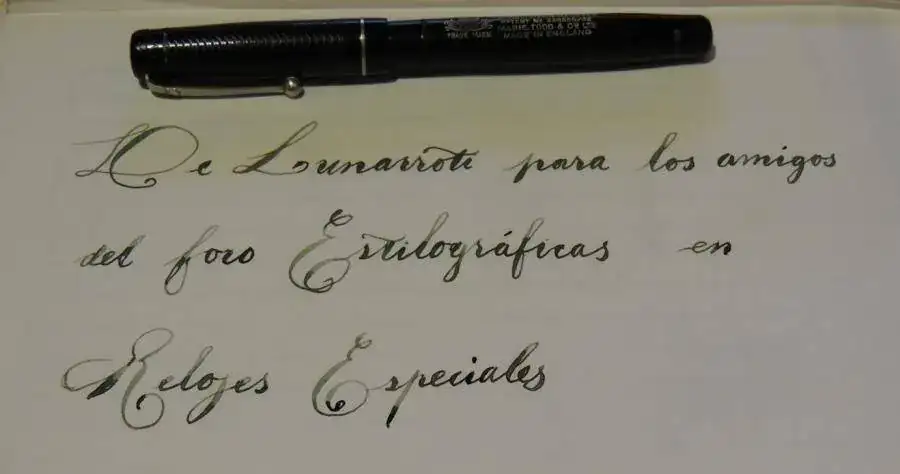 TRADE MARK
MABIE, TODD & CO LTD
MADE IN ENGLAND
De Lunarroti para los amigos
del foro Estilográficas en
Relojes Especiales